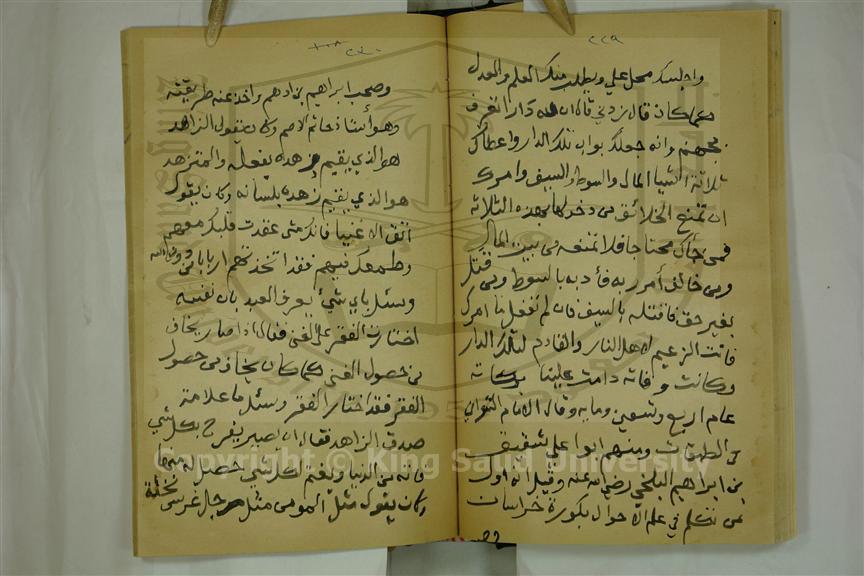 ٢٢٩
واجلسك محل علي ويطلب منك العلم والعدل
كما كان قال زدني قال ان لله دارا تعرف
بجهنم وانه جعلك بواب تلك الدار واعطاك
ثلاثة اشيا المال والسوط والسيف وامرك
ان تمنع الخلائق من دخولها بهذه الثلاثة
فمن جاك محتاجا فلا تمنعه من بيت المال
ومن خالف أمر ربه فأدبه بالسوط ومن قتل
بغير حق فاقتله بالسيف فان لم تفعل ما امرك
فانت الزعيم لاهل النار والقادم لتلك الدار
وكانت وفاته دامت علينا بركاته
عام اربع وتسعين ومايه وقال الامام الشعراني
في الطبقات ومنهم ابوا علي شقيق
بن ابراهيم البلخي رضي الله عنه وقيل انه اول
من تكلم في علم الاحوال بكورة خراسان
٢٣٠
وصحب ابراهيم بن ادهم واخذ عنه طريقته
وهو أستاذ حاتم الاصم وكان يقول الزاهد
هو الذي يقيم زهده بفعله والمتزهد
هو الذي يقيم زهده بلسانه وكان يقول
اتق الاغنيا فانك متى عقدت قلبك معهم
وطمعك فيهم فقد اتخذتهم اربابا من دون الله
وسئل باي شيء يعرف العبد بان نفسه
اختارت الفقر على الغنى فقال اذا صار يخاف
من حصول الغنى كما كان يخاف من حصول
الفقر فقد اختار الفقر وسئل ما علامة
صدق الزاهد فقال ان يصير يفرح بكل شي
فاته من الدنيا ويغتم لكل شي حصل له منها
وكان يقول مثل المومن مثل رجل غرس نخلة
Copyright © King Saud University